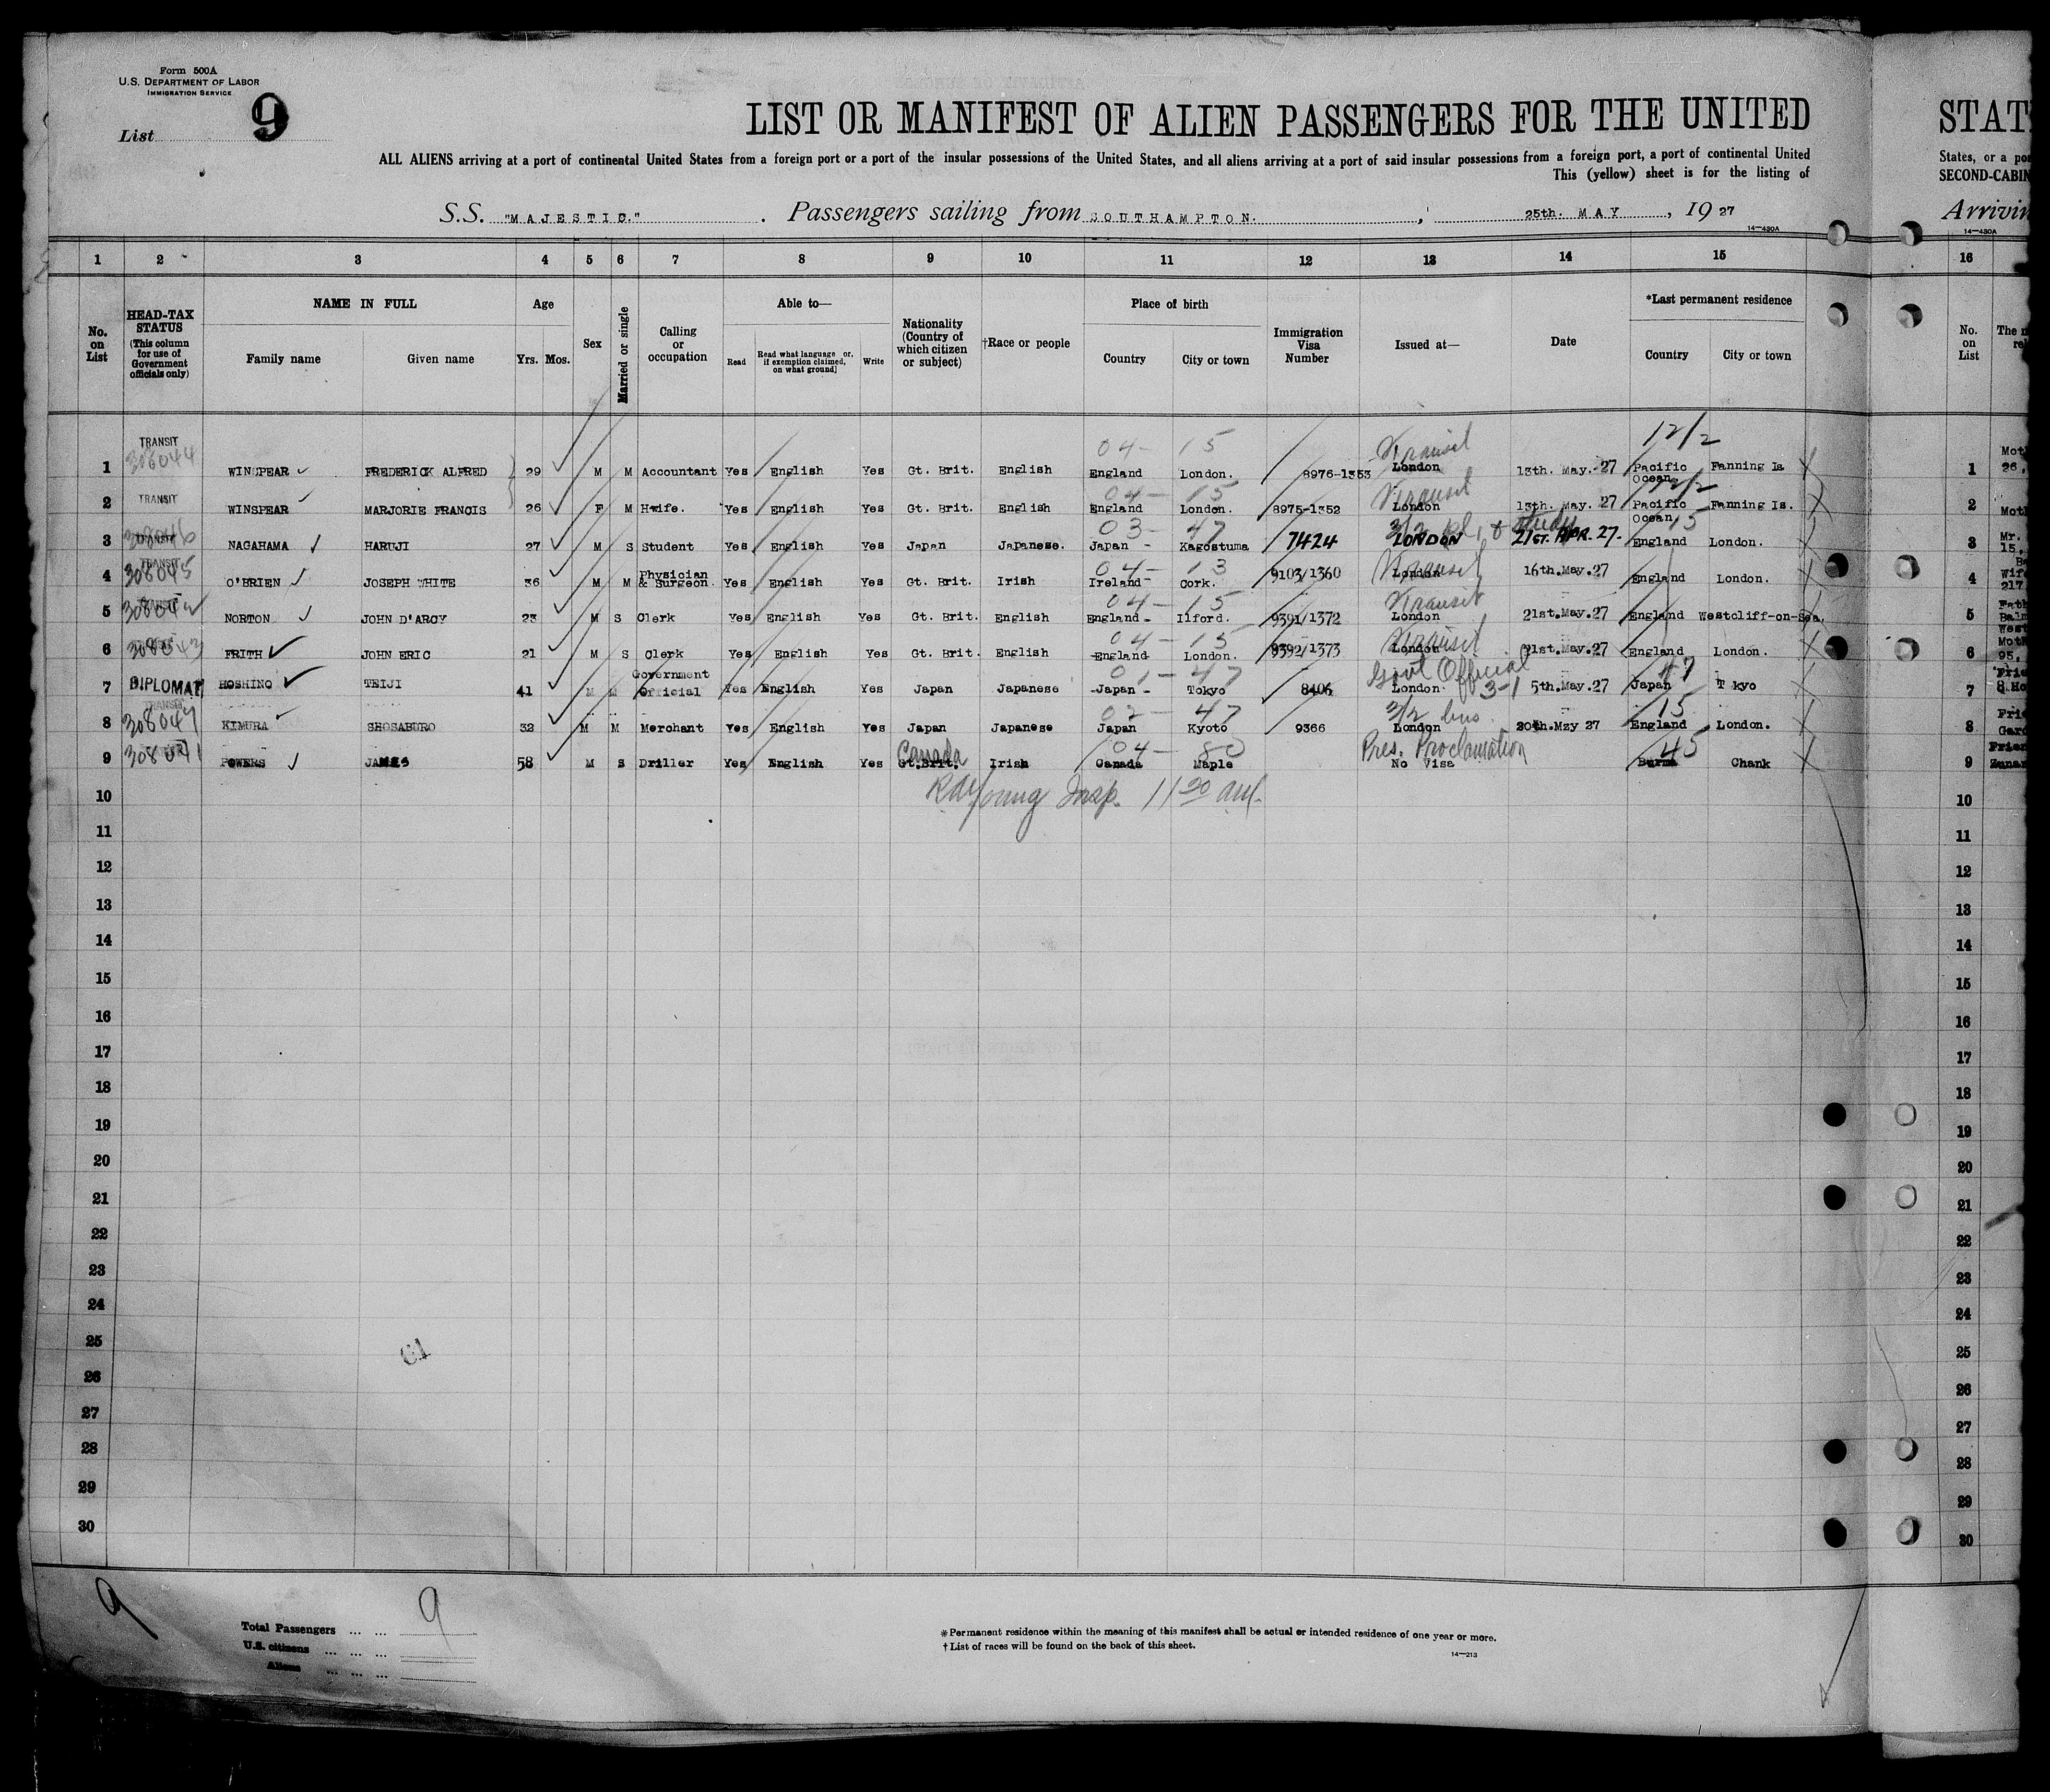 Form 500A
U.S. DEPARTMENT OF LABOR
IMMIGRATION SERVICE
List 9
LIST OR MANIFEST OF ALIEN PASSENGERS FOR THE UNITED
STAT
ALL ALIENS arriving at a port of continental United States from a foreign port or a port of the insular possessions of the United States, and all aliens arriving at a port of said insular possessions from a foreign port, a port of continental United
States, or a
This (yellow) sheet is for the listing of
SECOND-CABIN
S.S. "MAJESTIC." Passengers sailing from SOUTHAMPTON. , 25th. MAY , 1927
Arrivin
14—430A 14—430A
1 2 3 4 5 6 7 8 9 10 11 12 13 14 15 16
No. on List
HEAD-TAX STATUS (This column for use of Government officials only)
NAME IN FULL Family name Given name
Age Yrs. Mos.
Sex
Married or single
Calling or occupation
Able to— Read Read what language or, if exemption claimed, on what ground] Write
Nationality (Country of which citizen or subject)
†Race or people
Place of birth Country City or town
Immigration Visa Number
Issued at—
Date
*Last permanent residence Country City or town
No. on List
04- 15 Transit 12/2
1 TRANSIT 308044 WINSPEAR FREDERICK ALFRED 29 M M Accountant Yes English Yes Gt. Brit. English England London. 8976-1353 London 13th. May.-27 Pacific Ocean Fanning Is 1 26,
04- 15 Transit 12/2
2 TRANSIT WINSPEAR MARJORIE FRANCIS 26 F M Hwife. Yes English Yes Gt. Brit. English England London. 8975-1352 London 13th. May. 27 Pacific Ocean Fanning Is. 2
03- 47 3/2 & study 15
3 308046 NAGAHAMA HARUJI 27 M S Student Yes English Yes Japan Japanese. Japan - Kagostuma 7424 LONDON 21ST. APR. 27. England London. 3 Mr. 15,
04- 13 Transit
4 TRANSIT 308045 O'BRIEN JOSEPH WHITE 36 M M Physician & Surgeon. Yes English Yes Gt. Brit. Irish Ireland Cork. 9103/1360 London 16th.May.27 England London. 4 Wife 217
04- 15 Transit
5 NORTON JOHN D'ARCY 23 M S Clerk Yes English Yes Gt. Brit. English England - Ilford. 9391/1372 London 21st.May.27 England Westcliff-on-Sea. 5
04- 15 Transit
6 FRITH JOHN ERIC 21 M S Clerk Yes English Yes Gt. Brit. English England London. 9392/1373 London 21st.May.27 England London. 6 95,
01- 47 Govt Official 3-1 47
7 DIPLOMAT HOSHINO TEIJI 41 M M Government Official Yes English Yes Japan Japanese Japan - Tokyo 8406 London 5th.May.27 Japan T kyo 7
02- 47 3/2 bus 15
8 308047 KIMURA SHOSABURO 32 M M Merchant Yes English Yes Japan Japanese Japan Kyoto 9366 London 20th.Mzy 27 England London. 8
Canada 04- 80 Pres. Proclamation 45
9 308041 POWERS JAMES 58 M S Driller Yes English Yes Gt.Brit. Irish Canada Maple No Visa Burma Chank 9
Young Insp. 11 20 am.
10 10
11 11
12 12
13 13
14 14
15 15
16 16
17 17
18 18
19 19
20 20
21 21
22 22
23 23
24 24
25 25
26 26
27 27
28 28
29 29
30 30
9
Total Passengers ... ... 9
U.S. citizens ... ... ...
Aliens ... ... ...
*Permanent residence within the meaning of this manifest shall be actual or intended residence of one year or more.
†List of races will be found on the back of this sheet.
14—213